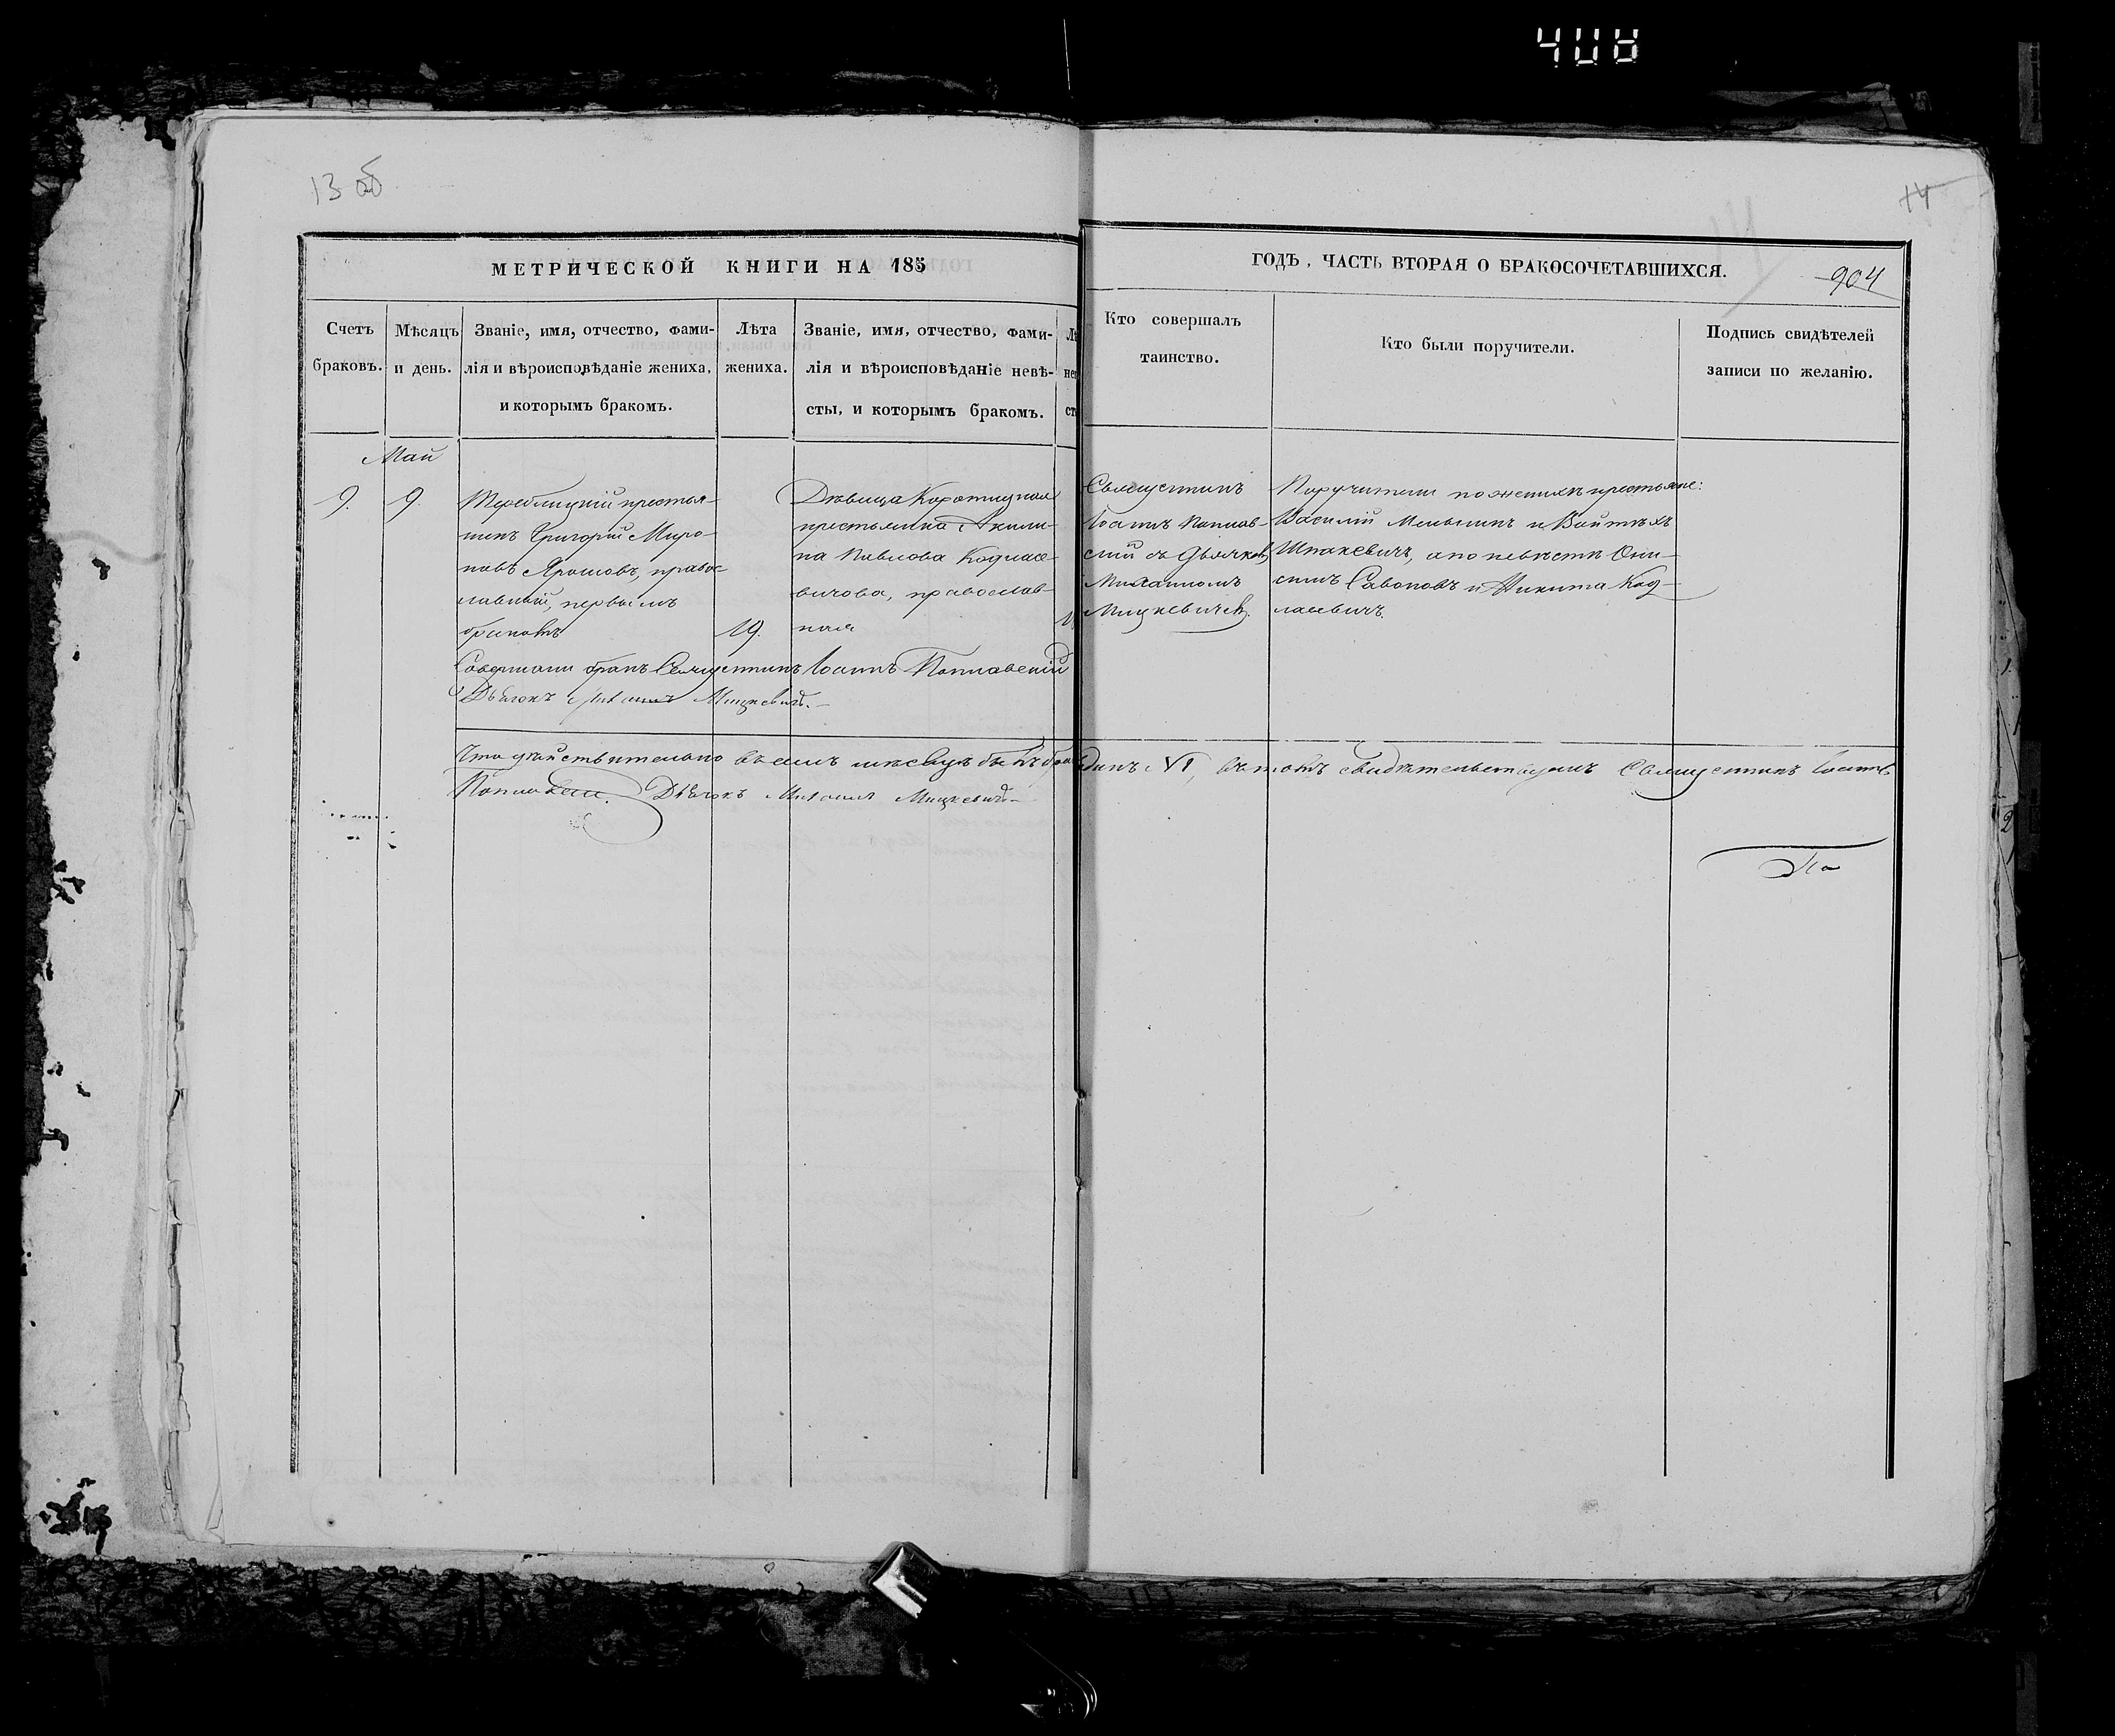 408
13 об
14
МЕТРИЧЕСКОЙ КНИГИ НА 185
ГОДЪ, ЧАСТЬ ВТОРАЯ О БРАКОСОЧЕТАВШИХСЯ.
904
Счетъ
браковъ.
Мѣсяцъ
и день.
Званіе, имя, отчество, фами-
лія и вѣроисповѣданіе жениха,
и которымъ бракомъ.
Лѣта
жениха.
Званіе, имя, отчество, фами-
лія и вѣроисповѣданіе невѣ-
сты, и которымъ бракомъ.
Кто совершалъ
таинство.
Кто были поручители.
Подпись свидѣтелей
записи по желанію.
Май
9.
9.
Теребличкій крестья-
нинъ Григорій Миро-
новъ Ярошовъ, правос
лавный, первымъ
бракомъ
19.
Дѣвица Коротицкая
крестьянка Акили-
на Павлова Кодлае
вичова, православ-
ная
Священникъ
Іоаннъ Поплав-
скій съ Дьячком
Михаиломъ
Мицкевичем.
Поручители по женихѣ крестьяне:
Василій Меньшикъ и Войтѣхъ
Шпакевичъ, а по невѣстѣ Они-
симъ Савоновъ и Никита Код-
лаевичъ.
Совершали бракъ Священникъ Іоаннъ Поплавскій
Дьячокъ Михаилъ Мицкевичъ.
Что дѣйствительно въ семъ мѣсяцѣ былъ бракъ одинъ №1, въ томъ свидѣтельствуемъ Священникъ Іоаннъ
Поплавскій. Дьячокъ Михаилъ Мицкевичъ
По